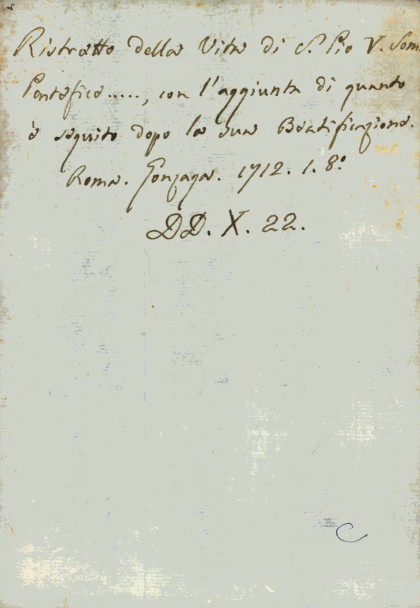 Ristretto della Vita di S. Pio V. Som
Pontefice....., con l'aggiunta di quanto
è seguito dopo la sua Beatificazione.
Roma. Gonzaga. 1712. 1. 8.º
DD. X. 22.
C